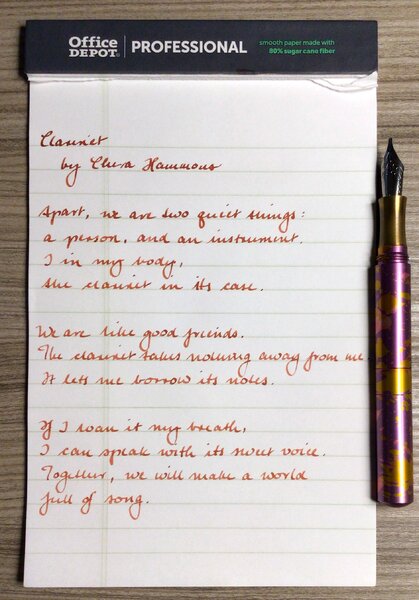 Office DEPOT PROFESSIONAL
smooth paper made with
80% sugar cane fiber
Clarinet
by Chera Hammons
Apart, we are two quiet things:
a person, and an instrument.
I in my body,
the clarinet in its case.
We are like good friends.
The clarinet takes nothing away from me.
It lets me borrow its notes.
If I loan it my breath,
I can speak with its sweet voice.
Together, we will make a world
full of song.